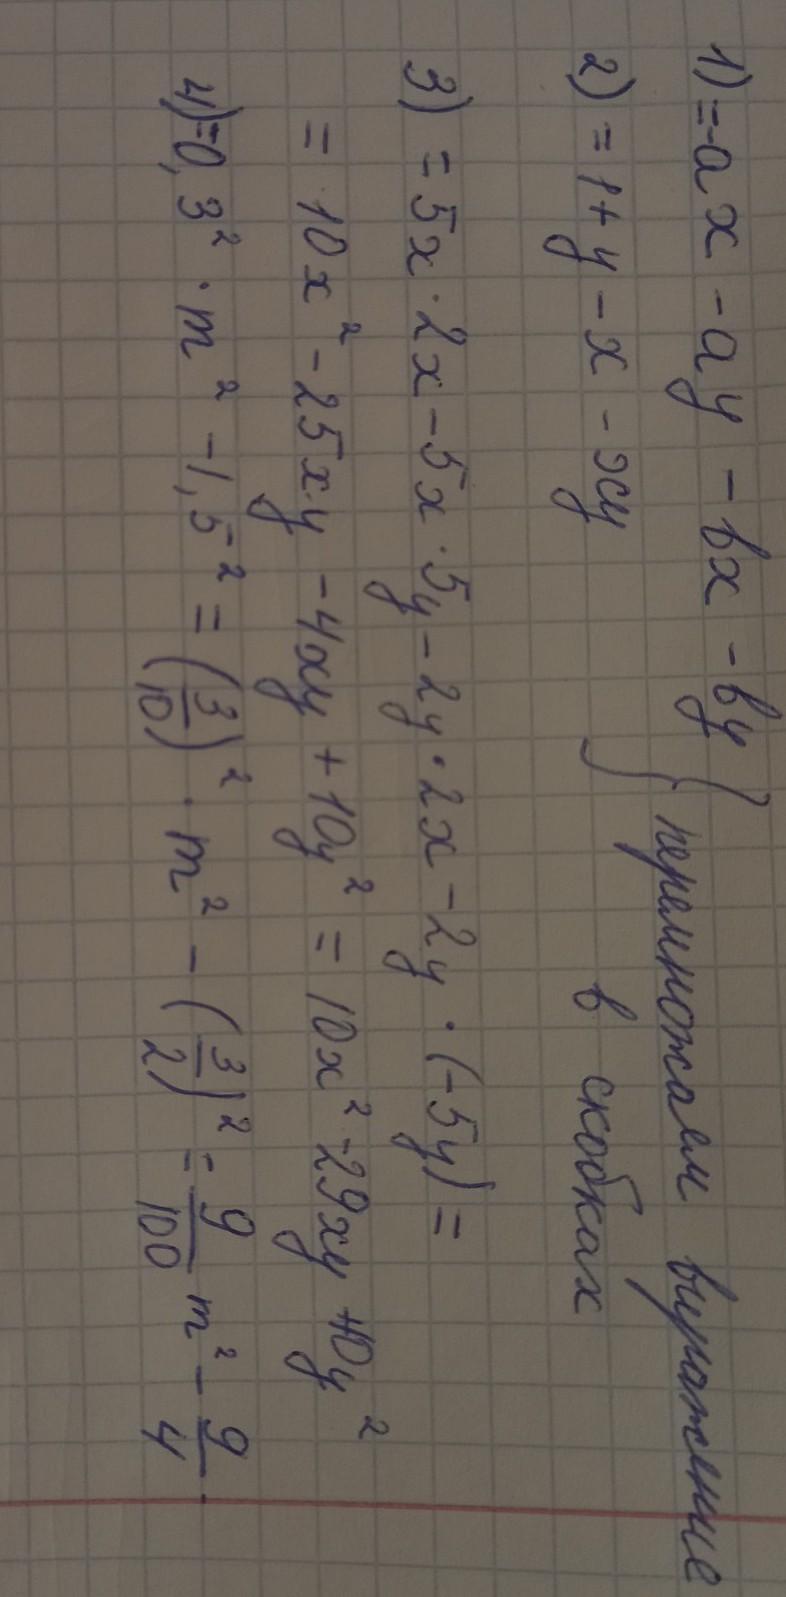 1) = -ax - ay - bx - by } перемножаем выражение
2) = 1 + y - x - xy } в скобках
3) = 5x · 2x - 5x · 5y - 2y · 2x - 2y · (-5y) =
= 10x² - 25xy - 4xy + 10y² = 10x² - 29xy + 10y²
4) = 0,3² · m² - 1,5² = (3/10)² · m² - (3/2)² = 9/100 m² - 9/4.